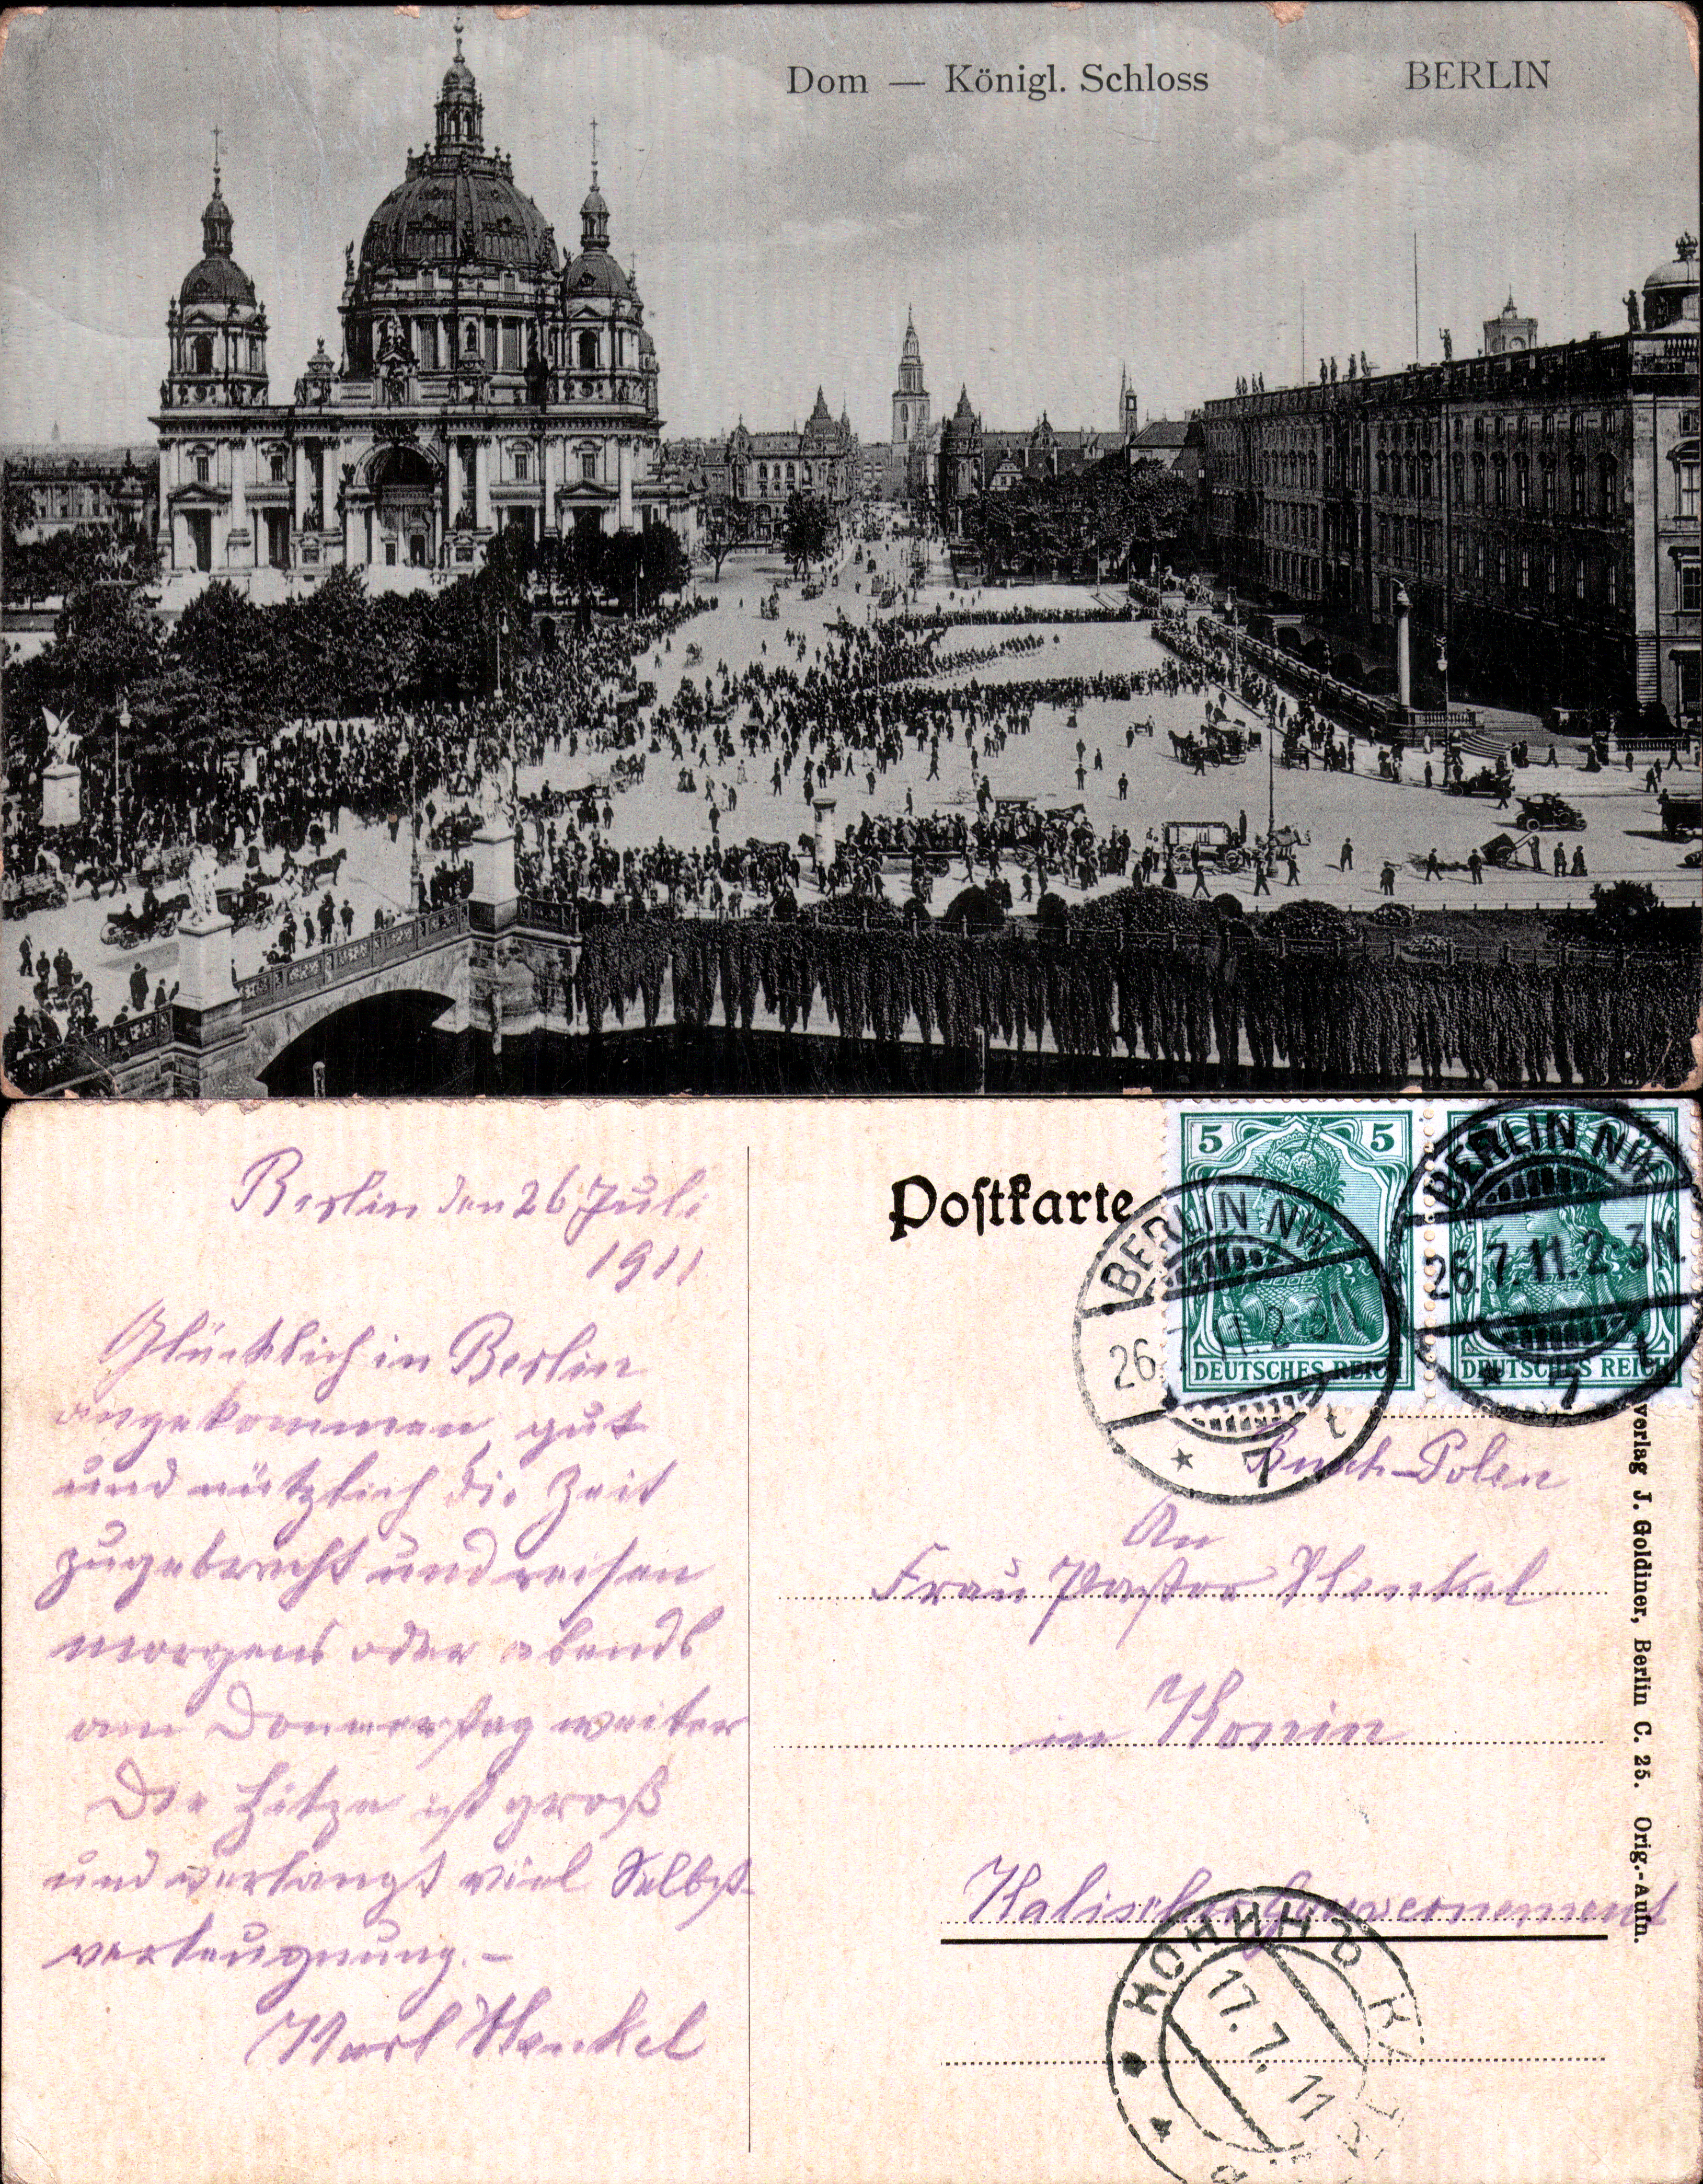 Dom — Königl. Schloss
BERLIN
Berlin den 26 Juli
1911
Glücklich in Berlin
angekommen, gut
und nützlich die Zeit
zugebracht und reisen
morgens oder abends
am Donnerstag weiter
Die Hitze ist groß
und verlangt viel Selbst-
verleugnung.—
Karl Henkel
Postkarte
5 5
DEUTSCHES REICH
DEUTSCHES REICH
BERLIN NW
26. 11. 2-3N
* 7 t
BERLIN NW
26.7.11.2-3N.
* 7 t
Russ.-Polen
An
Frau Pastor Henkel
in Konin
Kalischer Gouvernement
КОНИНЪ КАЛ
17.7.11
Verlag J. Goldiner, Berlin C. 25. Orig.-Aufn.